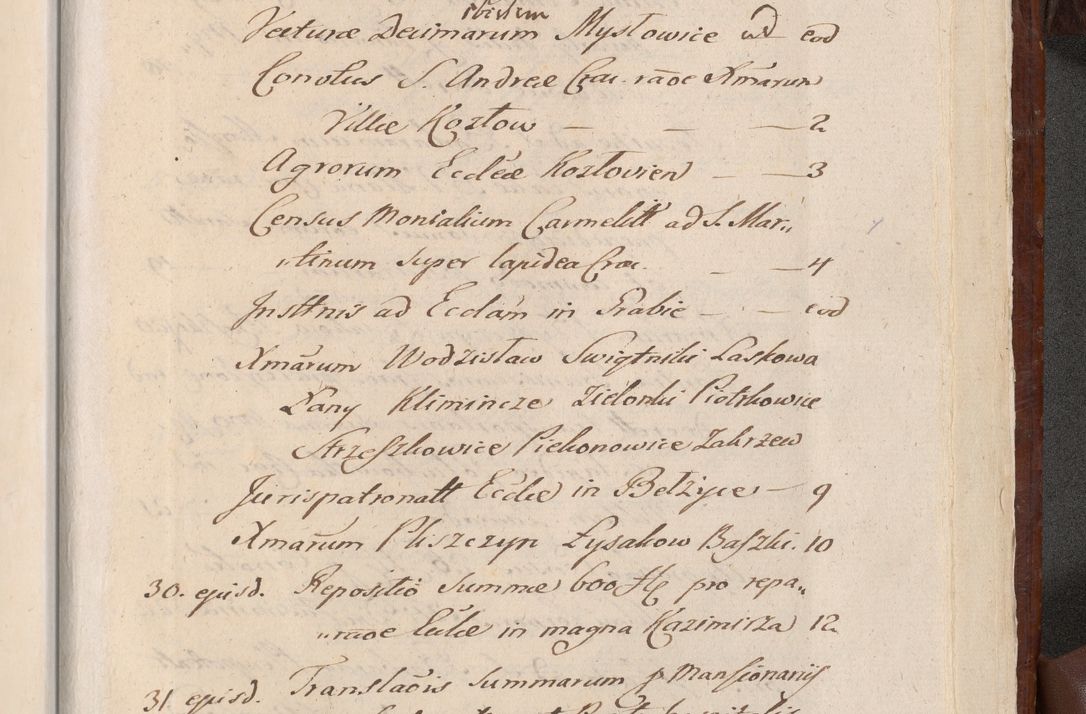 ibidem
Vecturæ Decimarum Mysłowice ad eod
Conotus S. Andreæ Crac. raõe Xmarum
Villæ Kozłow — — — 2
Agrorum Eccleæ Kozłovien — — 3
Census Monialium Carmelitt ad S. Mar„
„tinum super lapidea Crac. — — 4
Insttnis ad Ecclam in Rabie — — eod
Xmarum Wodzisław Swiętniki Laskowa
Łany Klimincze Zielonki Piotrkowice
Strzeszkowice Piekonowice Zakrzew
Jurispatronatt Eccle in Bełżyce — 9
Xmarum Pliszczyn Łysakow Baszki. 10
30. ejusd. Repositio Summæ 600 fl pro repa„
„raõe Eccle in magna Kazimirza 12
31 ejusd. Translaõis Summarum p Mansionariis